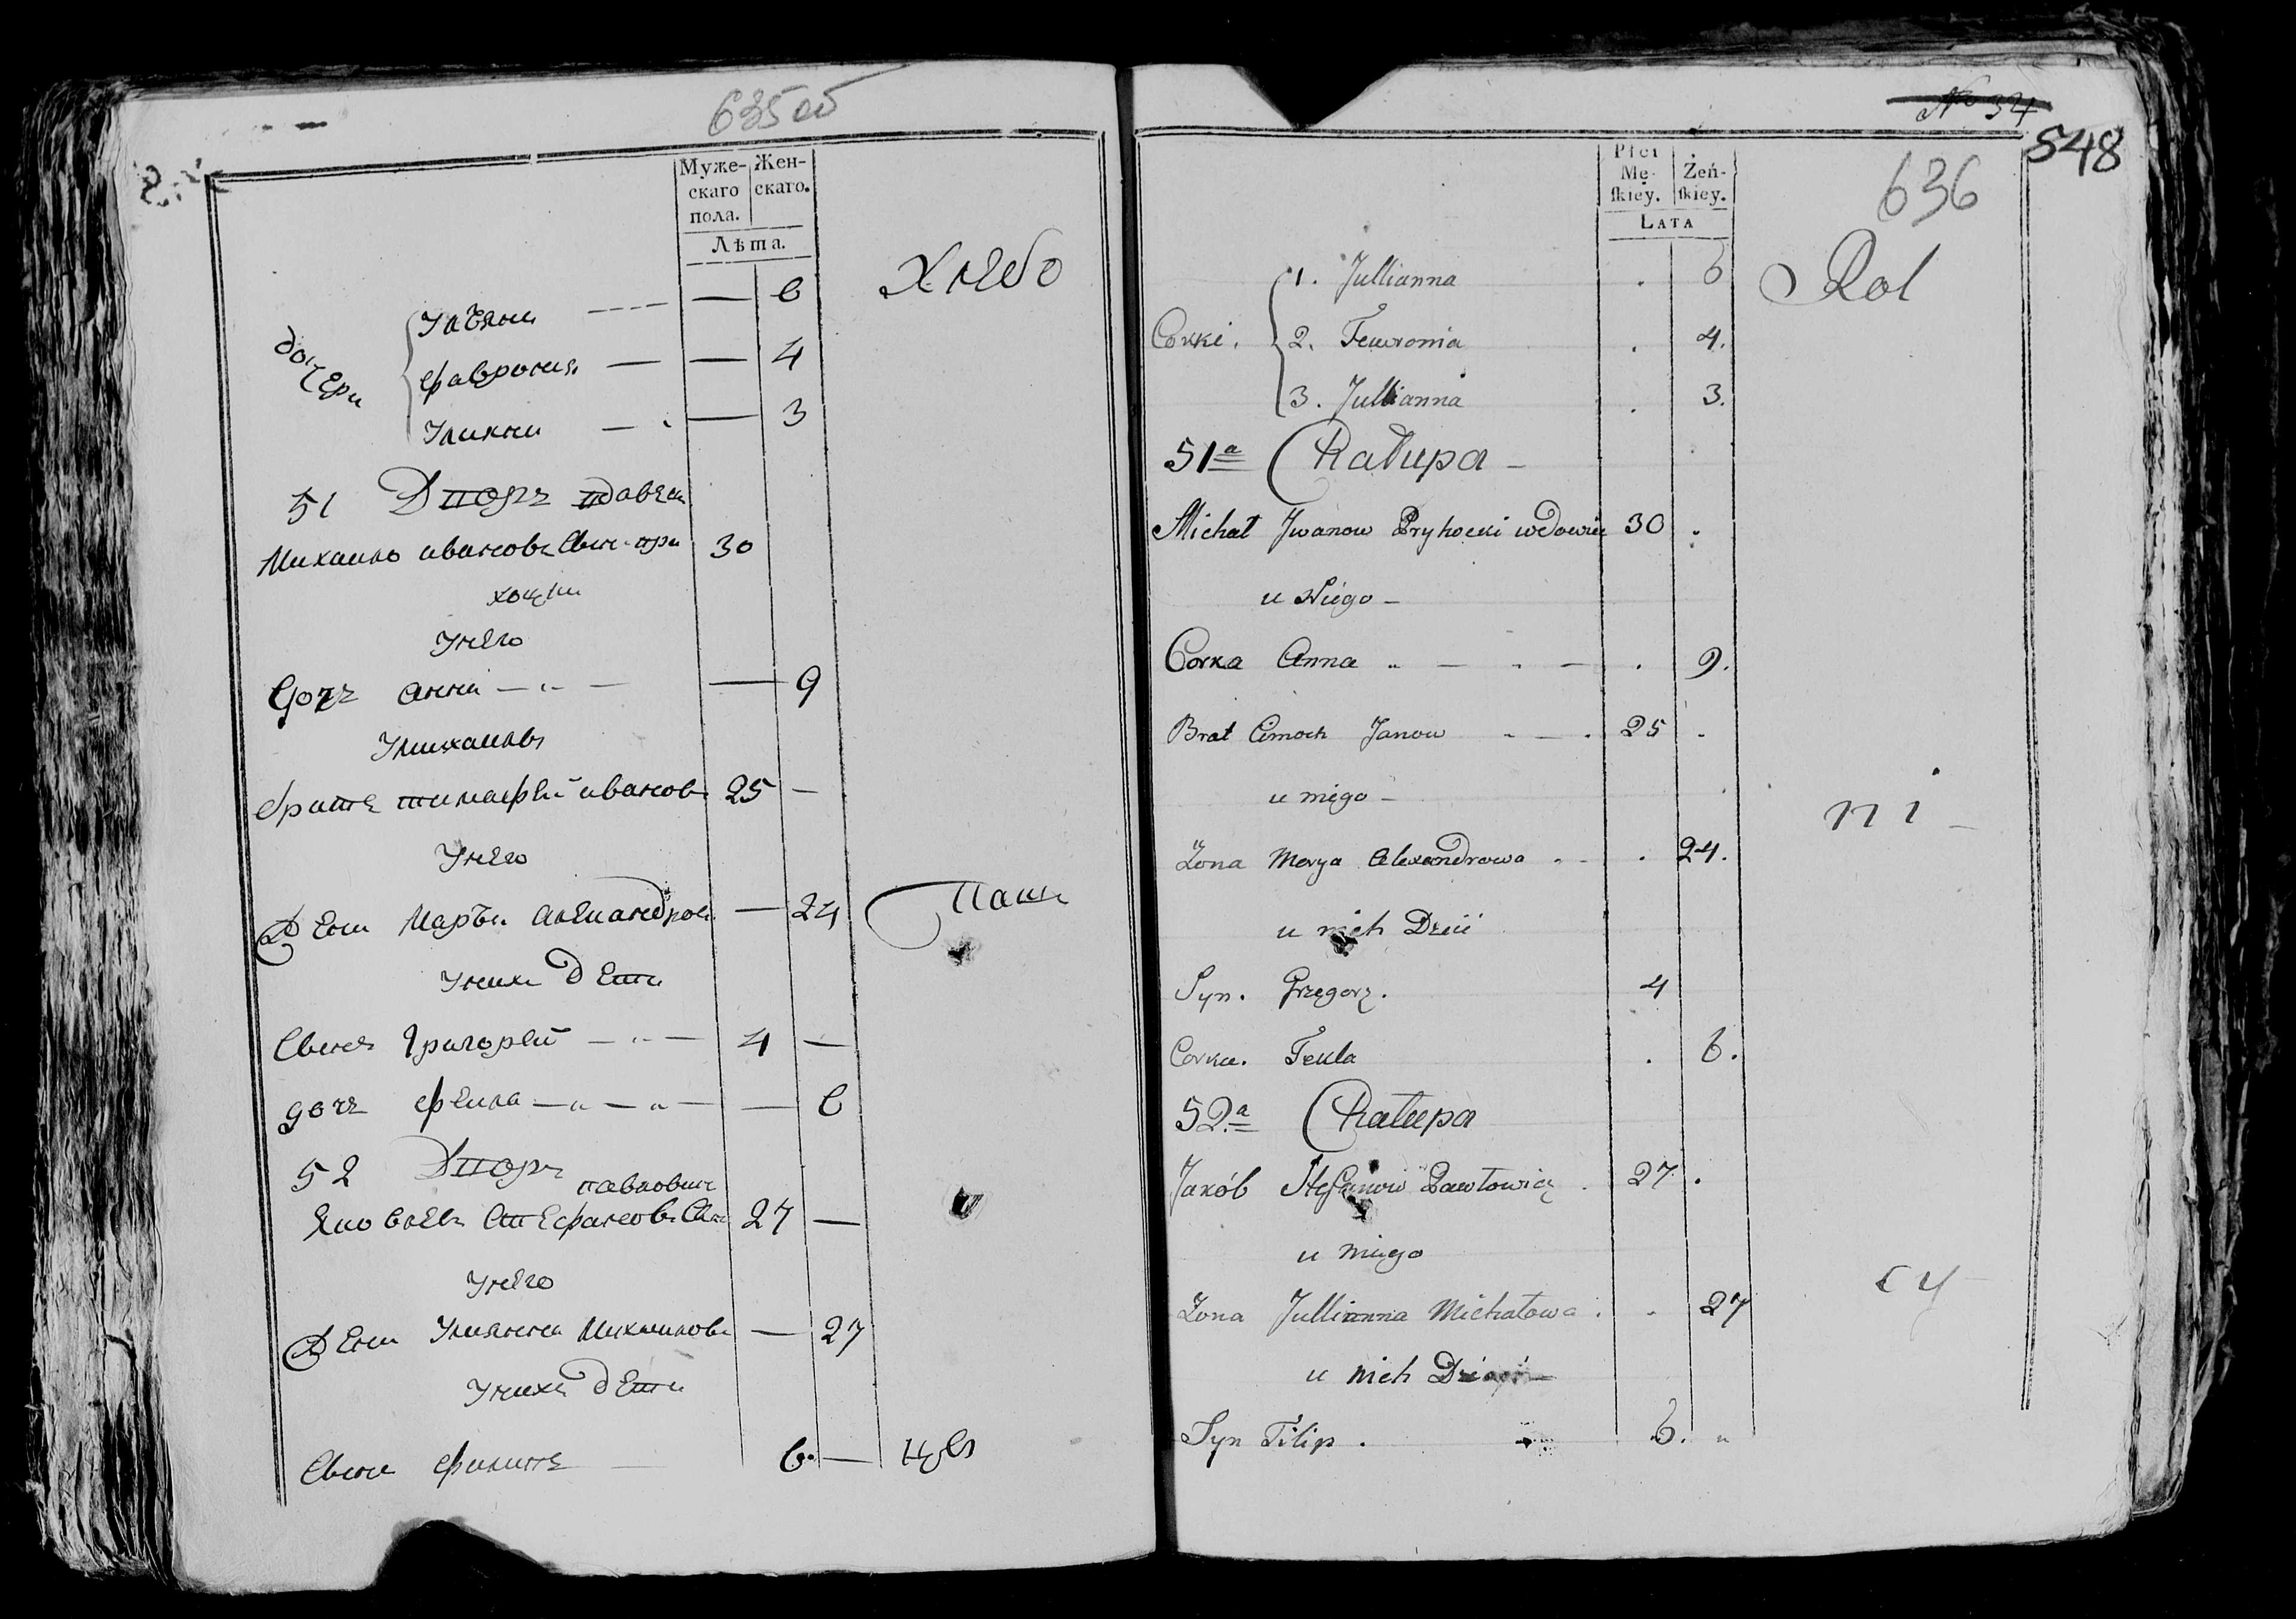 635 об
Муже- Жен-
скаго скаго.
пола.
Лѣта.
Хлебо
Ульяна — — 6
дочери
Фаврония — — 4
Улияна — — 3
51 Дворъ вдовец
Михаило ивановъ Сынъ при 30
хоцки
У него
Дочь анна — — 9
У михаила
братъ тимофей ивановъ 25 —
У него
Жена Марья александрова — 24
Паш
У нихъ дети
Сынъ Григорей — 4 —
дочь фекла — — 6
52 Дворъ
павлович
Яковлевъ Стефановъ Сынъ 27 —
У него
Жена Улиянна Михаилова — 27
У нихъ дети
Сынъ филипъ 6. —
цы
№ 34
548
636
Płci
Mę- Żeń-
ſkiey. ſkiey.
LATA
Rol
1. Jullianna . 6
Corki. 2. Fewronia . 4.
3. Jullianna . 3.
51a Chałupa —
Michał Jwanow Pryhocki wdowiec 30 .
u Niego —
Corka Anna „ — „ — . 9.
Brat Cimoch Janow - — . 25 .
u niego —
ni —
Żona Marya Alexandrowa . - . 24.
u nich Dzieci
Syn. Grzegorz. 4
Corka. Tekla . 6.
52.a Chałupa
Jakób Stefanow Pawłowicz . 27. .
u niego
cy
Zona Jullianna Michałowa . . 27
u nich Dzieci —
Syn Filip . 6. „